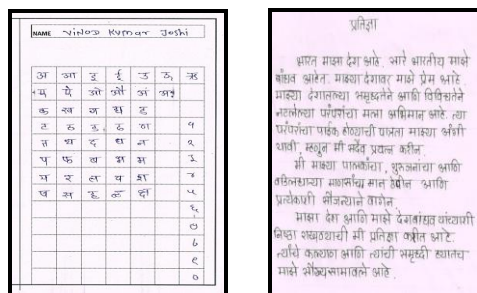 NAME Vinod Kumar Joshi
अ आ इ ई उ ऊ ऋ
ए ऐ ओ औ अं अः
क ख ग घ ङ
ट ठ ड ढ ण १
त थ द ध न २
प फ ब भ म ३
य र ल व श ४
ष स ह ळ क्ष ५
६
७
८
९
०
प्रतिज्ञा
भारत माझा देश आहे. सारे भारतीय माझे
बांधव आहेत. माझ्या देशावर माझे प्रेम आहे.
माझ्या देशातल्या समृध्दतेने आणि विविधतेने
नटलेल्या परंपरांचा मला अभिमान आहे. त्या
परंपरांचा पाईक होण्याची पात्रता माझ्या अंगी
यावी, म्हणून मी सदैव प्रयत्न करीन.
मी माझ्या पालकांचा, गुरुजनांचा आणि
वडिलधाऱ्या माणसांचा मान ठेवीन आणि
प्रत्येकाशी सौजन्याने वागेन.
माझा देश आणि माझे देशबांधव यांच्याशी
निष्ठा राखण्याची मी प्रतिज्ञा करीत आहे.
त्यांचे कल्याण आणि त्यांची समृध्दी ह्यातच
माझे सौख्य सामावले आहे.